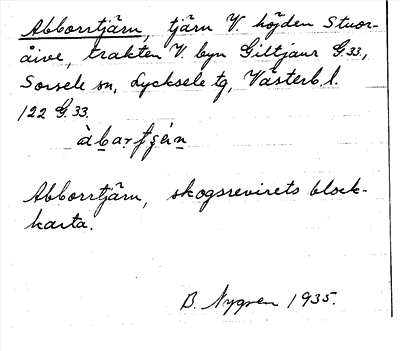 Abborrtjärn, tjärn V. höjden Stuor-
åive, trakten V. byn Giltjaur G.33,
Sorsele sn, Lycksele tg, Västerb. l.
122 G.33.
Abborrtjärn, skogsrevirets block-
karta.
B. Nygren 1935.